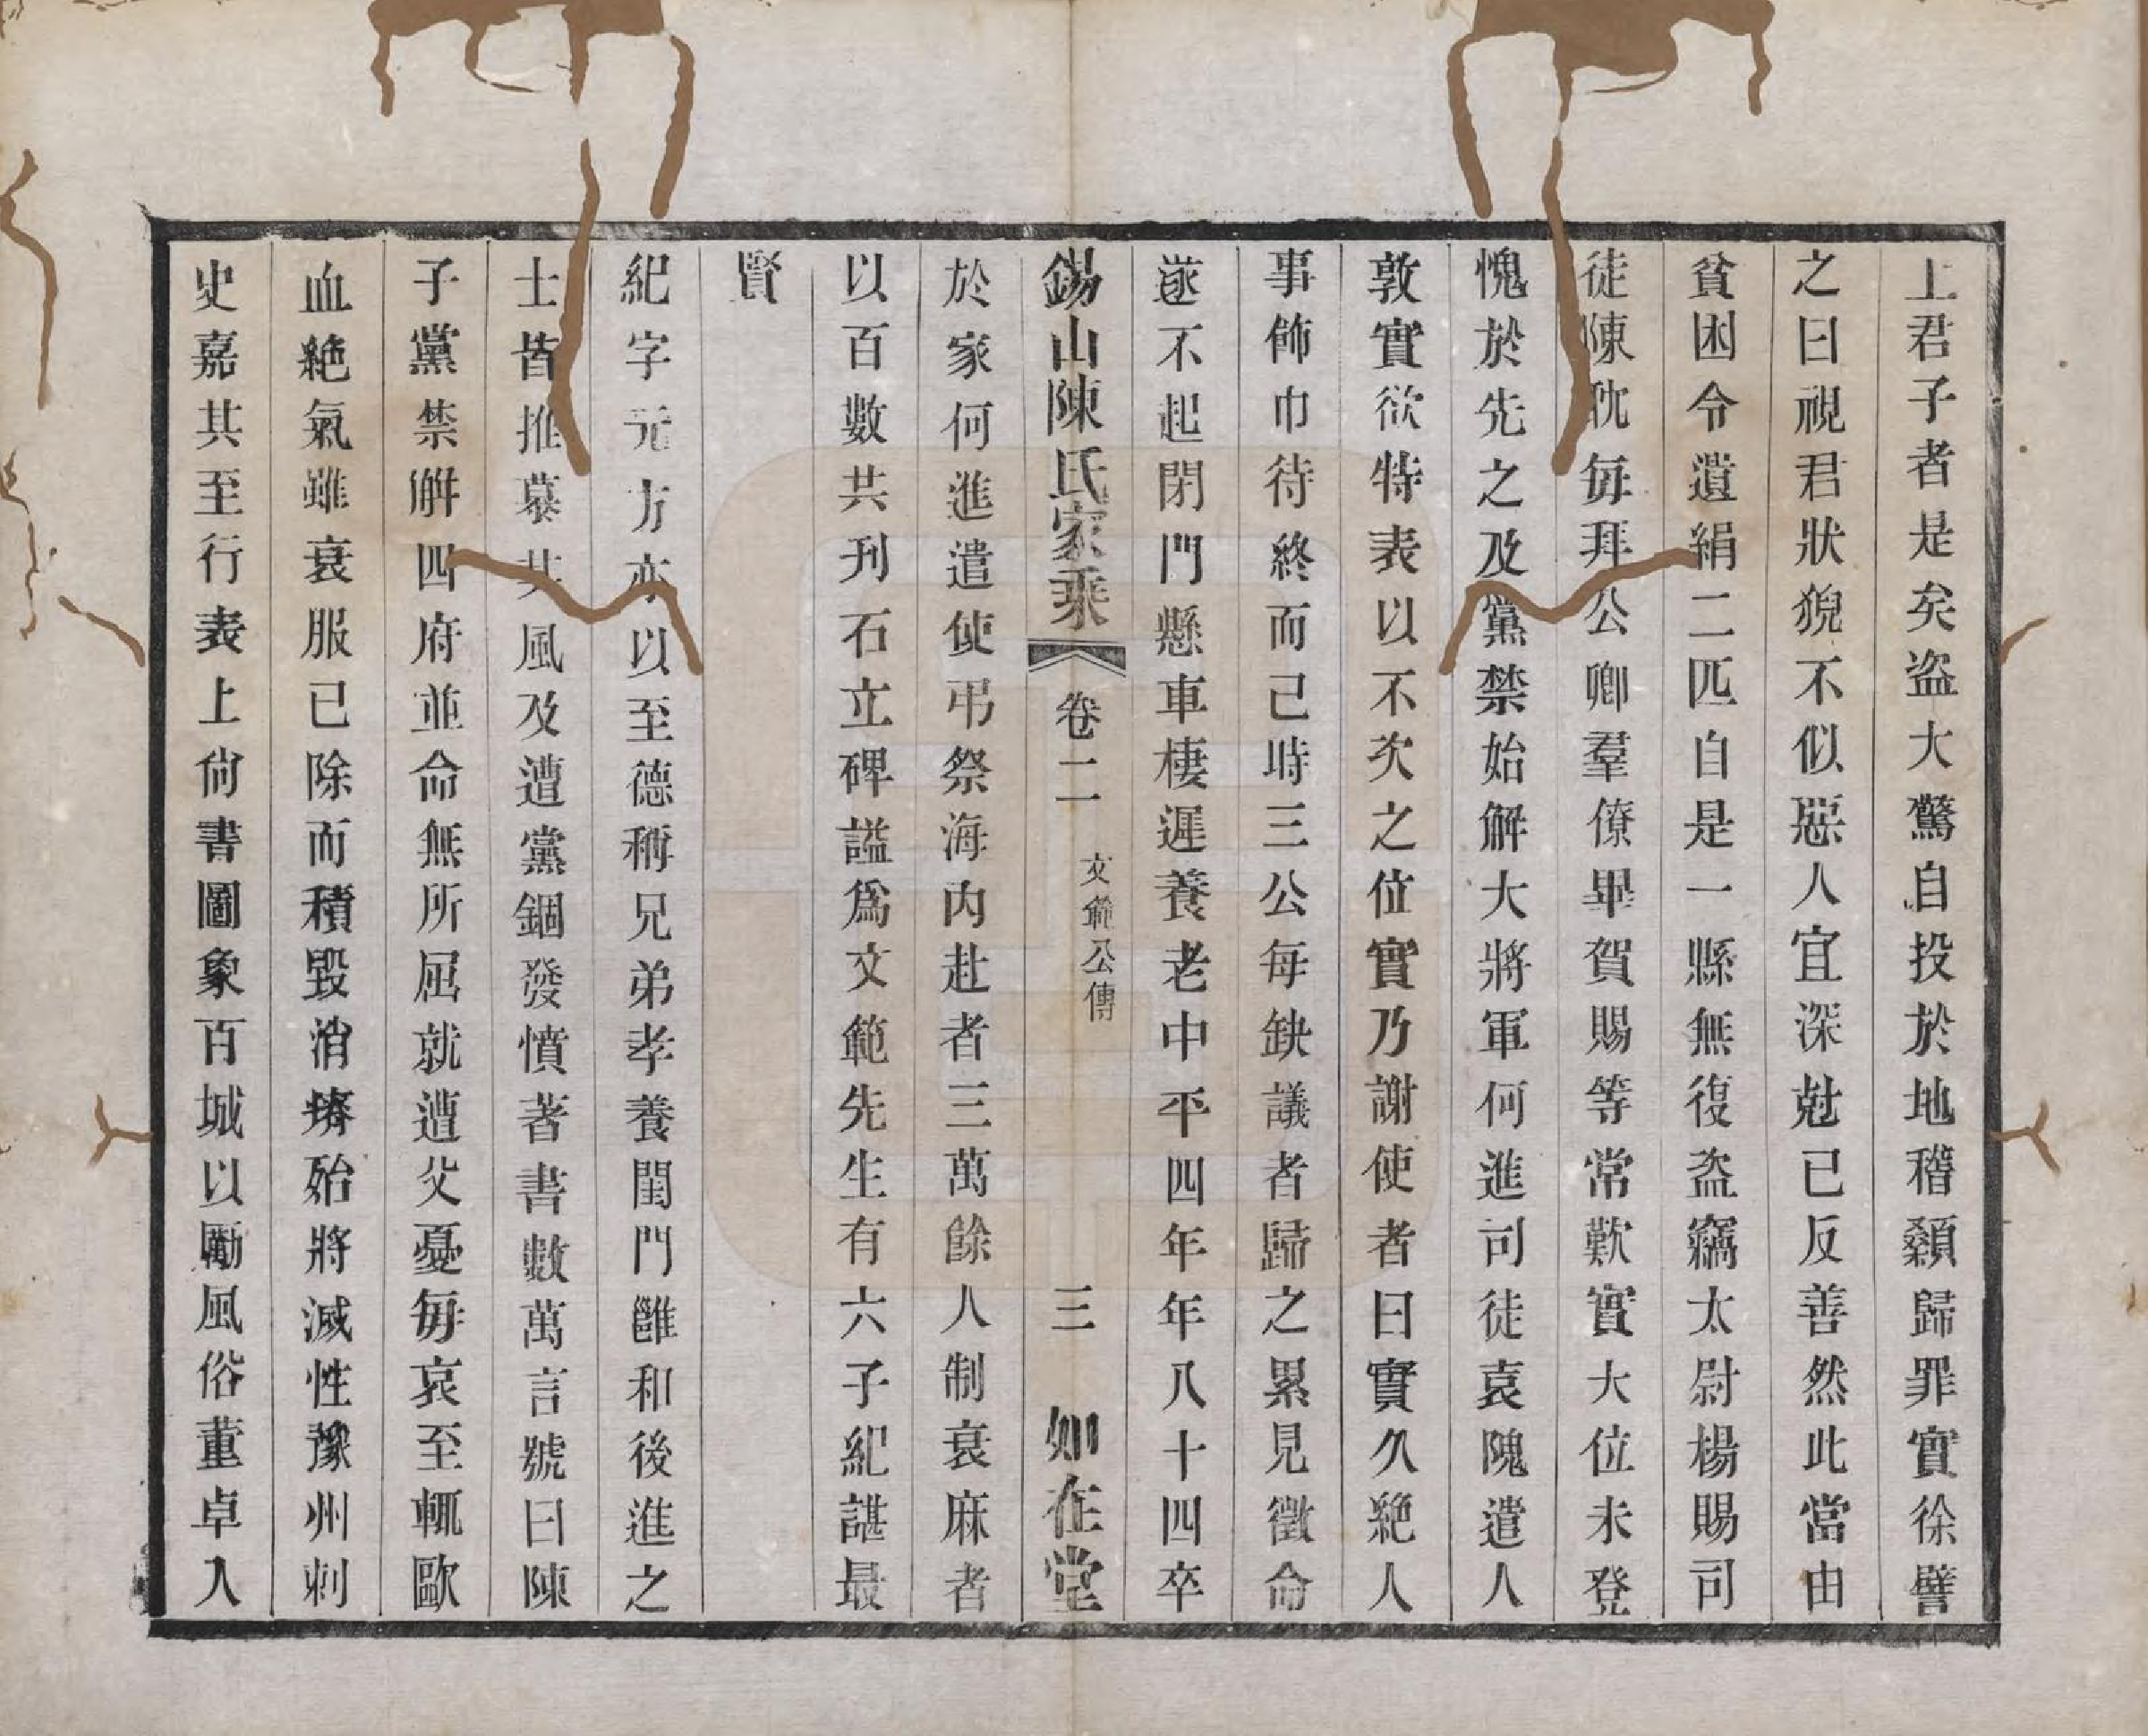 上君子者是矣盗大驚自投於地稽顙歸罪實徐譬
之曰視君狀貌不似惡人宜深尅已反善然此當由
貧困令遺絹二匹自是一縣無復盗竊太尉楊賜司
徒陳耽每拜公卿羣僚畢賀賜等常歎實大位未登
愧於先之及黨禁始解大將軍何進司徒袁隗遣人
敦實欲特表以不次之位實乃謝使者曰實久絶人
事飾巾待終而已時三公每缺議者歸之累見徵命
遂不起閉門懸車棲遲養老中平四年年八十四卒
錫山陳氏家乘 卷二 文範公傳 三 如在堂
於家何進遣使弔祭海内赴者三萬餘人制衰麻者
以百數共刋石立碑謚爲文範先生有六子紀諶最
賢
紀字元方亦以至德稱兄弟孝養閨門雝和後進之
士皆推慕其風及遭黨錮發憤著書數萬言號曰陳
子黨禁解四府並命無所屈就遭父憂每哀至輒歐
血絶氣雖衰服已除而積毀消瘠殆將滅性豫州刺
史嘉其至行表上尙書圖象百城以勵風俗董卓入